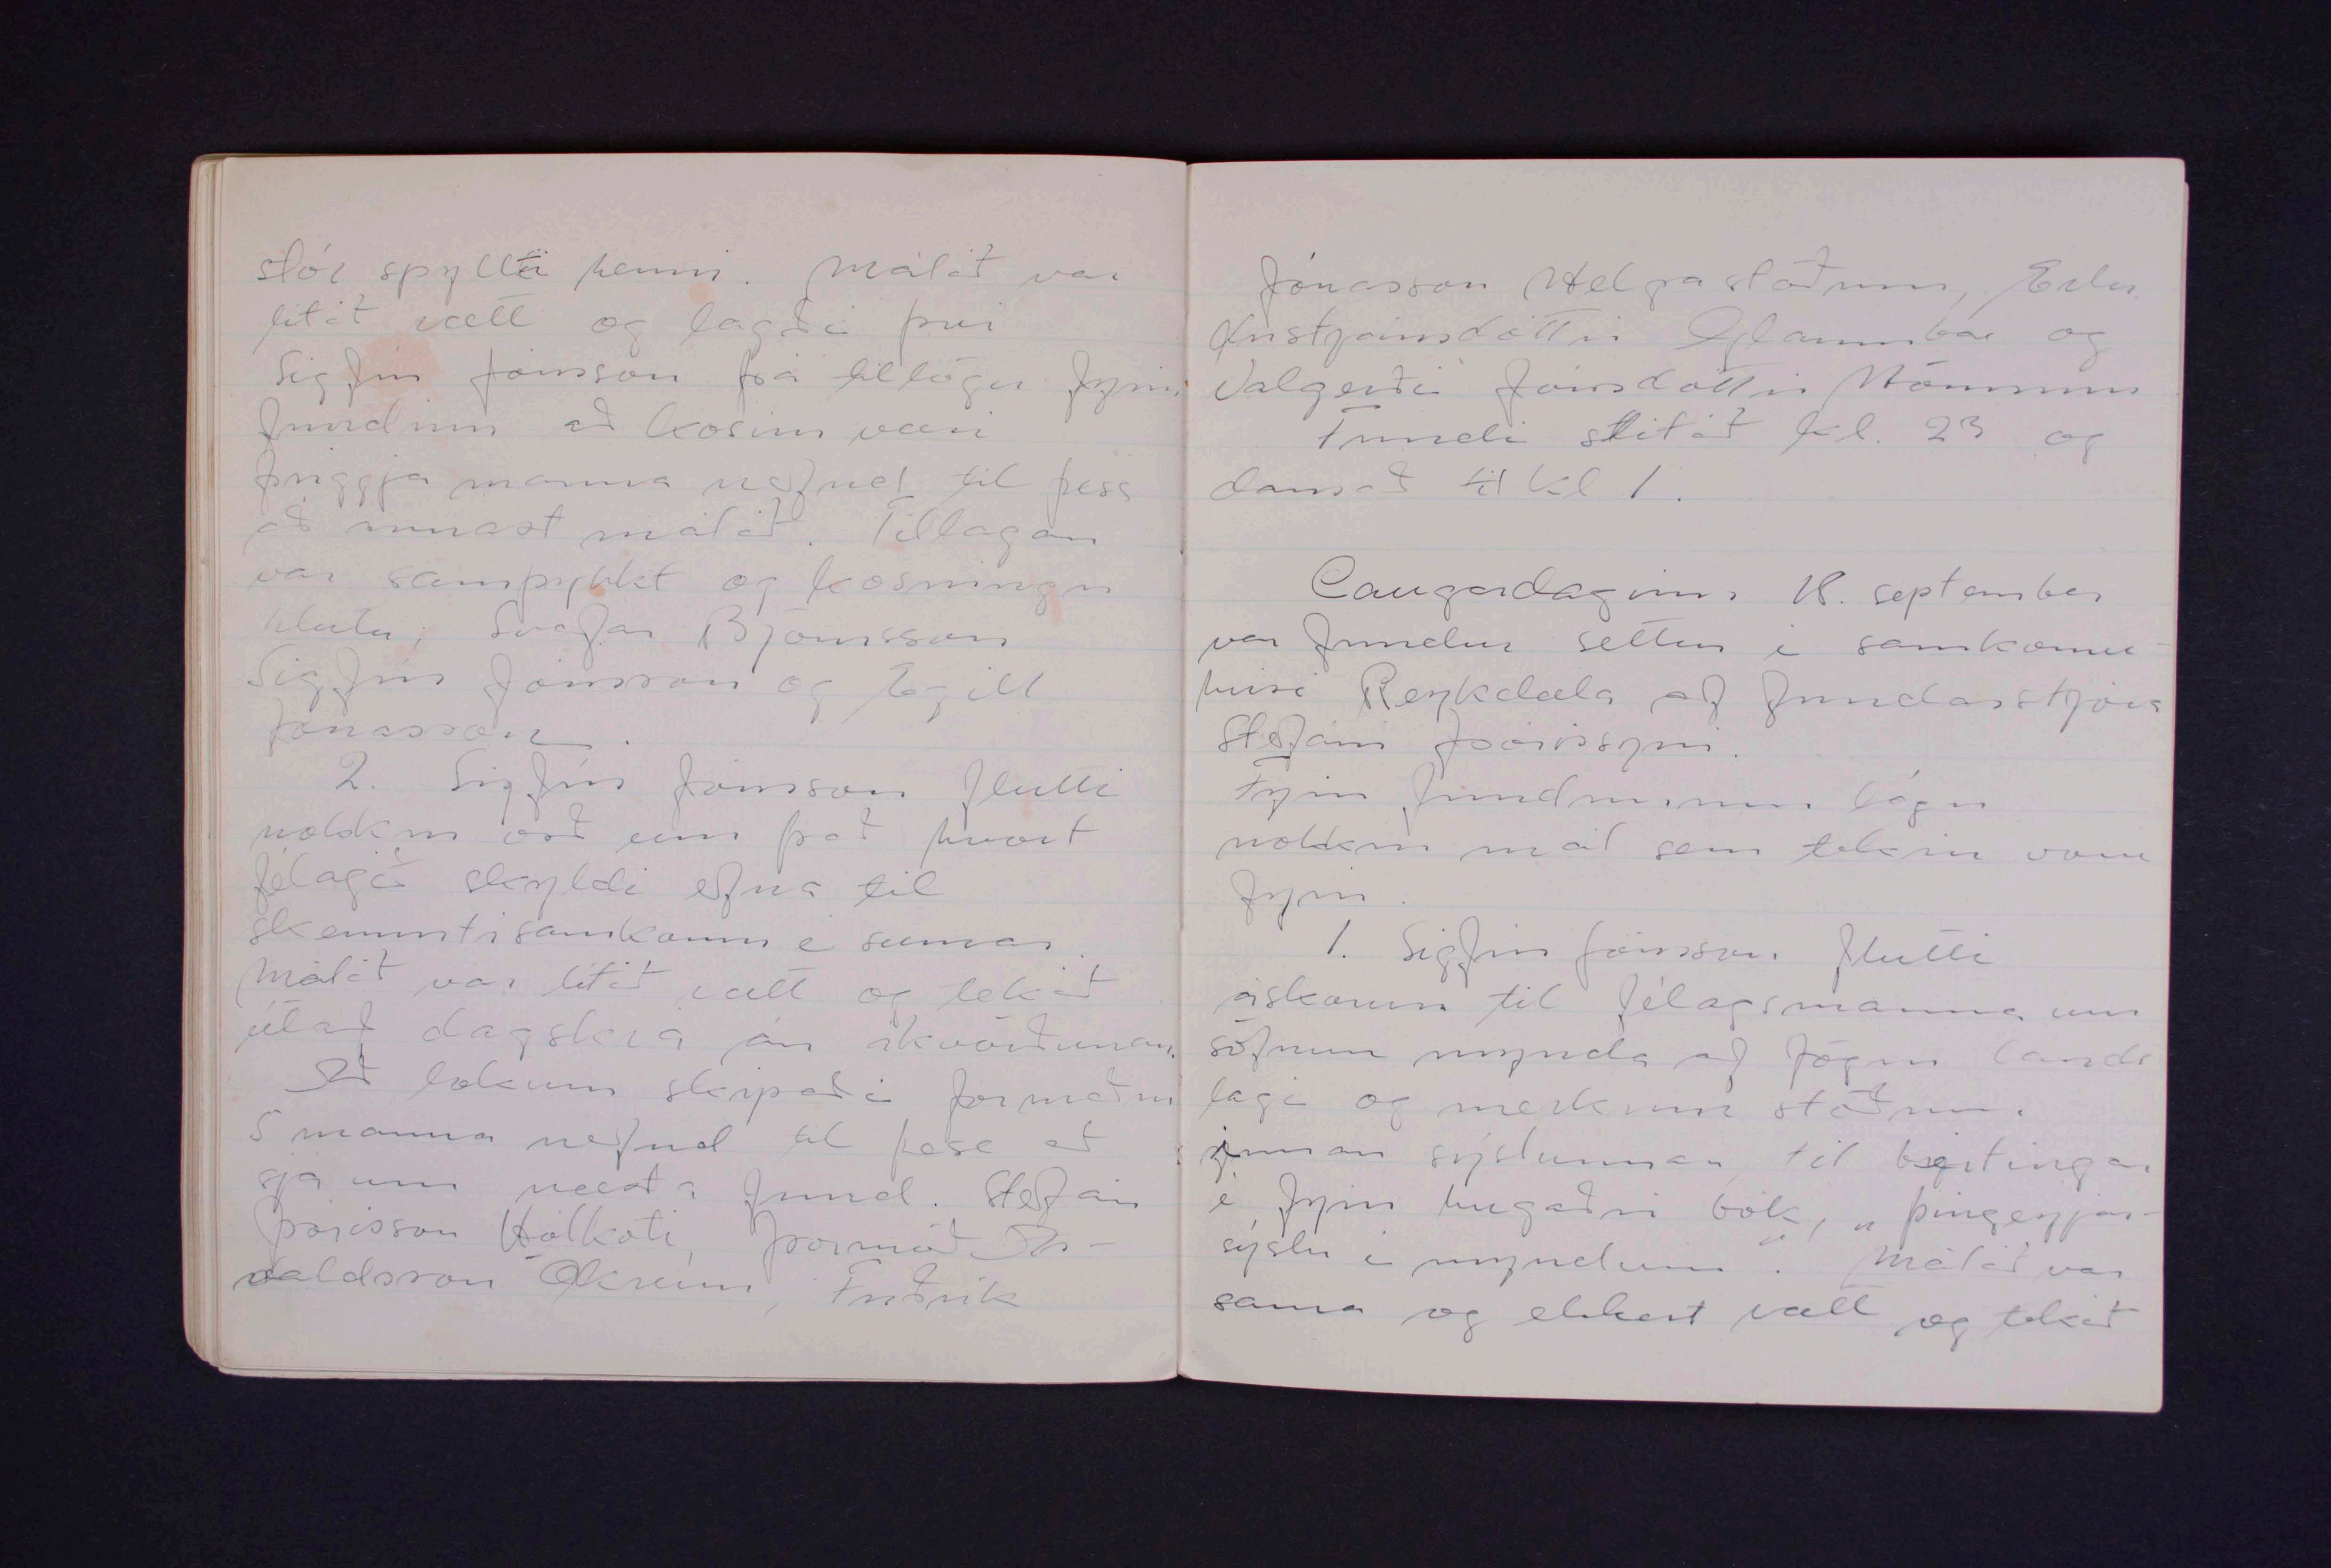 stór spyllti henni. Málið var
litið rætt og lagði því
Sigfús Jónsson frá tillögu fyrir
fundinn að kosin væri
þriggja manna nefnd til þess
að annast málið. Tillagan
var samþykkt og kosningu
hlutu; Svafar Björnsson
Sigfús Jónsson og Egill
Jónasson.
2. Sigfús Jónsson flutti
nokkur orð um það hvort
félagið skyldi efna til
skemmtisamkomu í sumar.
Málið var lítið rætt og tekið
útaf dagskrá án ákvörðunar.
Að lokum skipaði formaður
5 manna nefnd til þess að
sjá um næsta fund. Stefán
Þórisson Hólkoti, Þormóð Ás-
valdsson Ökrum, Friðrik
Jónasson Helgastöðum, Erlu
Kristjánsdóttir Glaumbæ og
Valgerði Jónsdóttir Hömrum
Fundi slitið kl. 23 og
dansað til kl 1.
Laugardaginn 18. september
var fundur settur í samkomu-
húsi Reykdæla af fundarstjóra
Stefáni Þórissyni.
Fyrir fundinum lágu
nokkur mál sem tekin voru
fyrir.
1. Sigfús Jónsson flutti
áskorun til félagsmanna um
söfnun mynda af fögru lands
lagi og merkum stöðum.
innan sýslunnar til birtingar
í fyrir hugaðri bók, „Þingeyjar-
sýslu í myndum". Málið var
sama og ekkert rætt og tekið